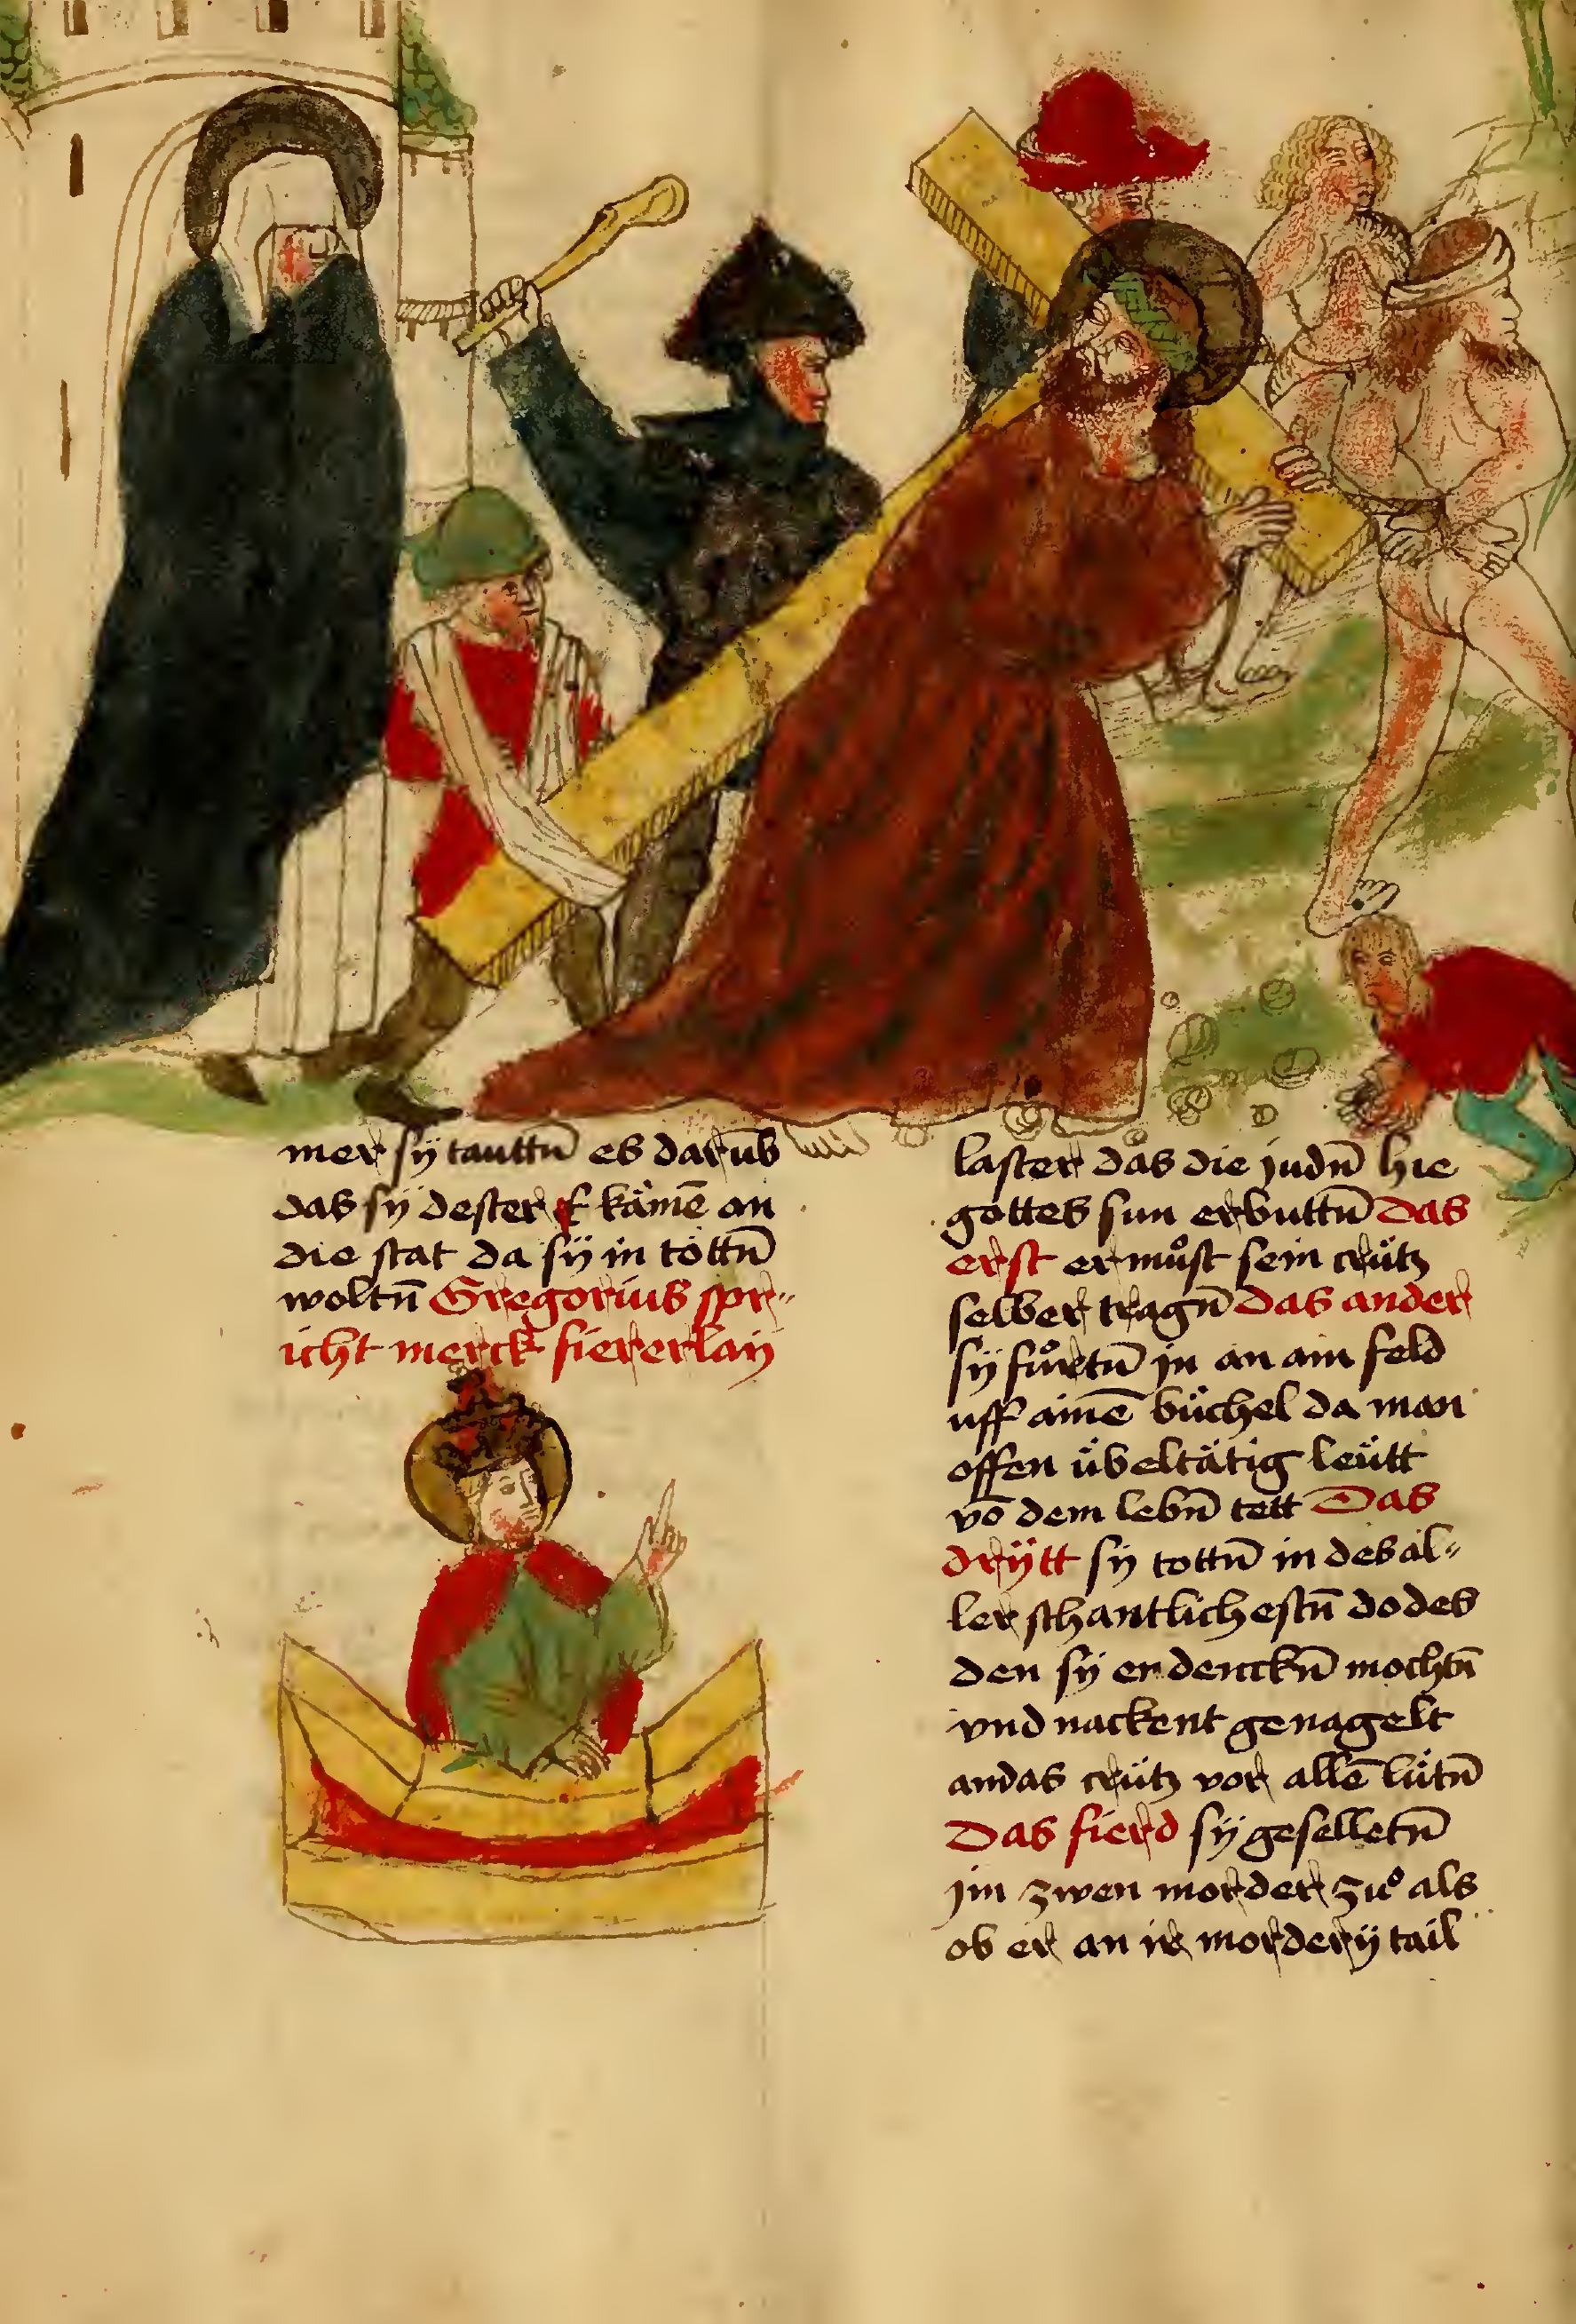 mer sÿ tauttn̄ es darūb
das sÿ dester f kämē an
die stat da sÿ in töttn̄
woltn̄ Gregorius spr〃
icht merck fiererlaÿ
laster das die judn̄ hie
gottes sun erbuttn̄ Das
erst er muͦst sein crütz
selber tragn̄ Das ander
sÿ fuͦrtn̄ jn an ain feld
uff ainē büchel da man
offen übeltätig leütt
vō dem lebn̄ tett Das
drÿtt sÿ tottn̄ in des al〃
ler schantlichestn̄ dodes
den sÿ erdenckn̄ mochtn̄
vnd nackent genagelt
an das crütz vor allē lütn̄
Das fierd sÿ geselletn̄
jm zwen morder zuͦ als
ob er an ir morderÿ tail